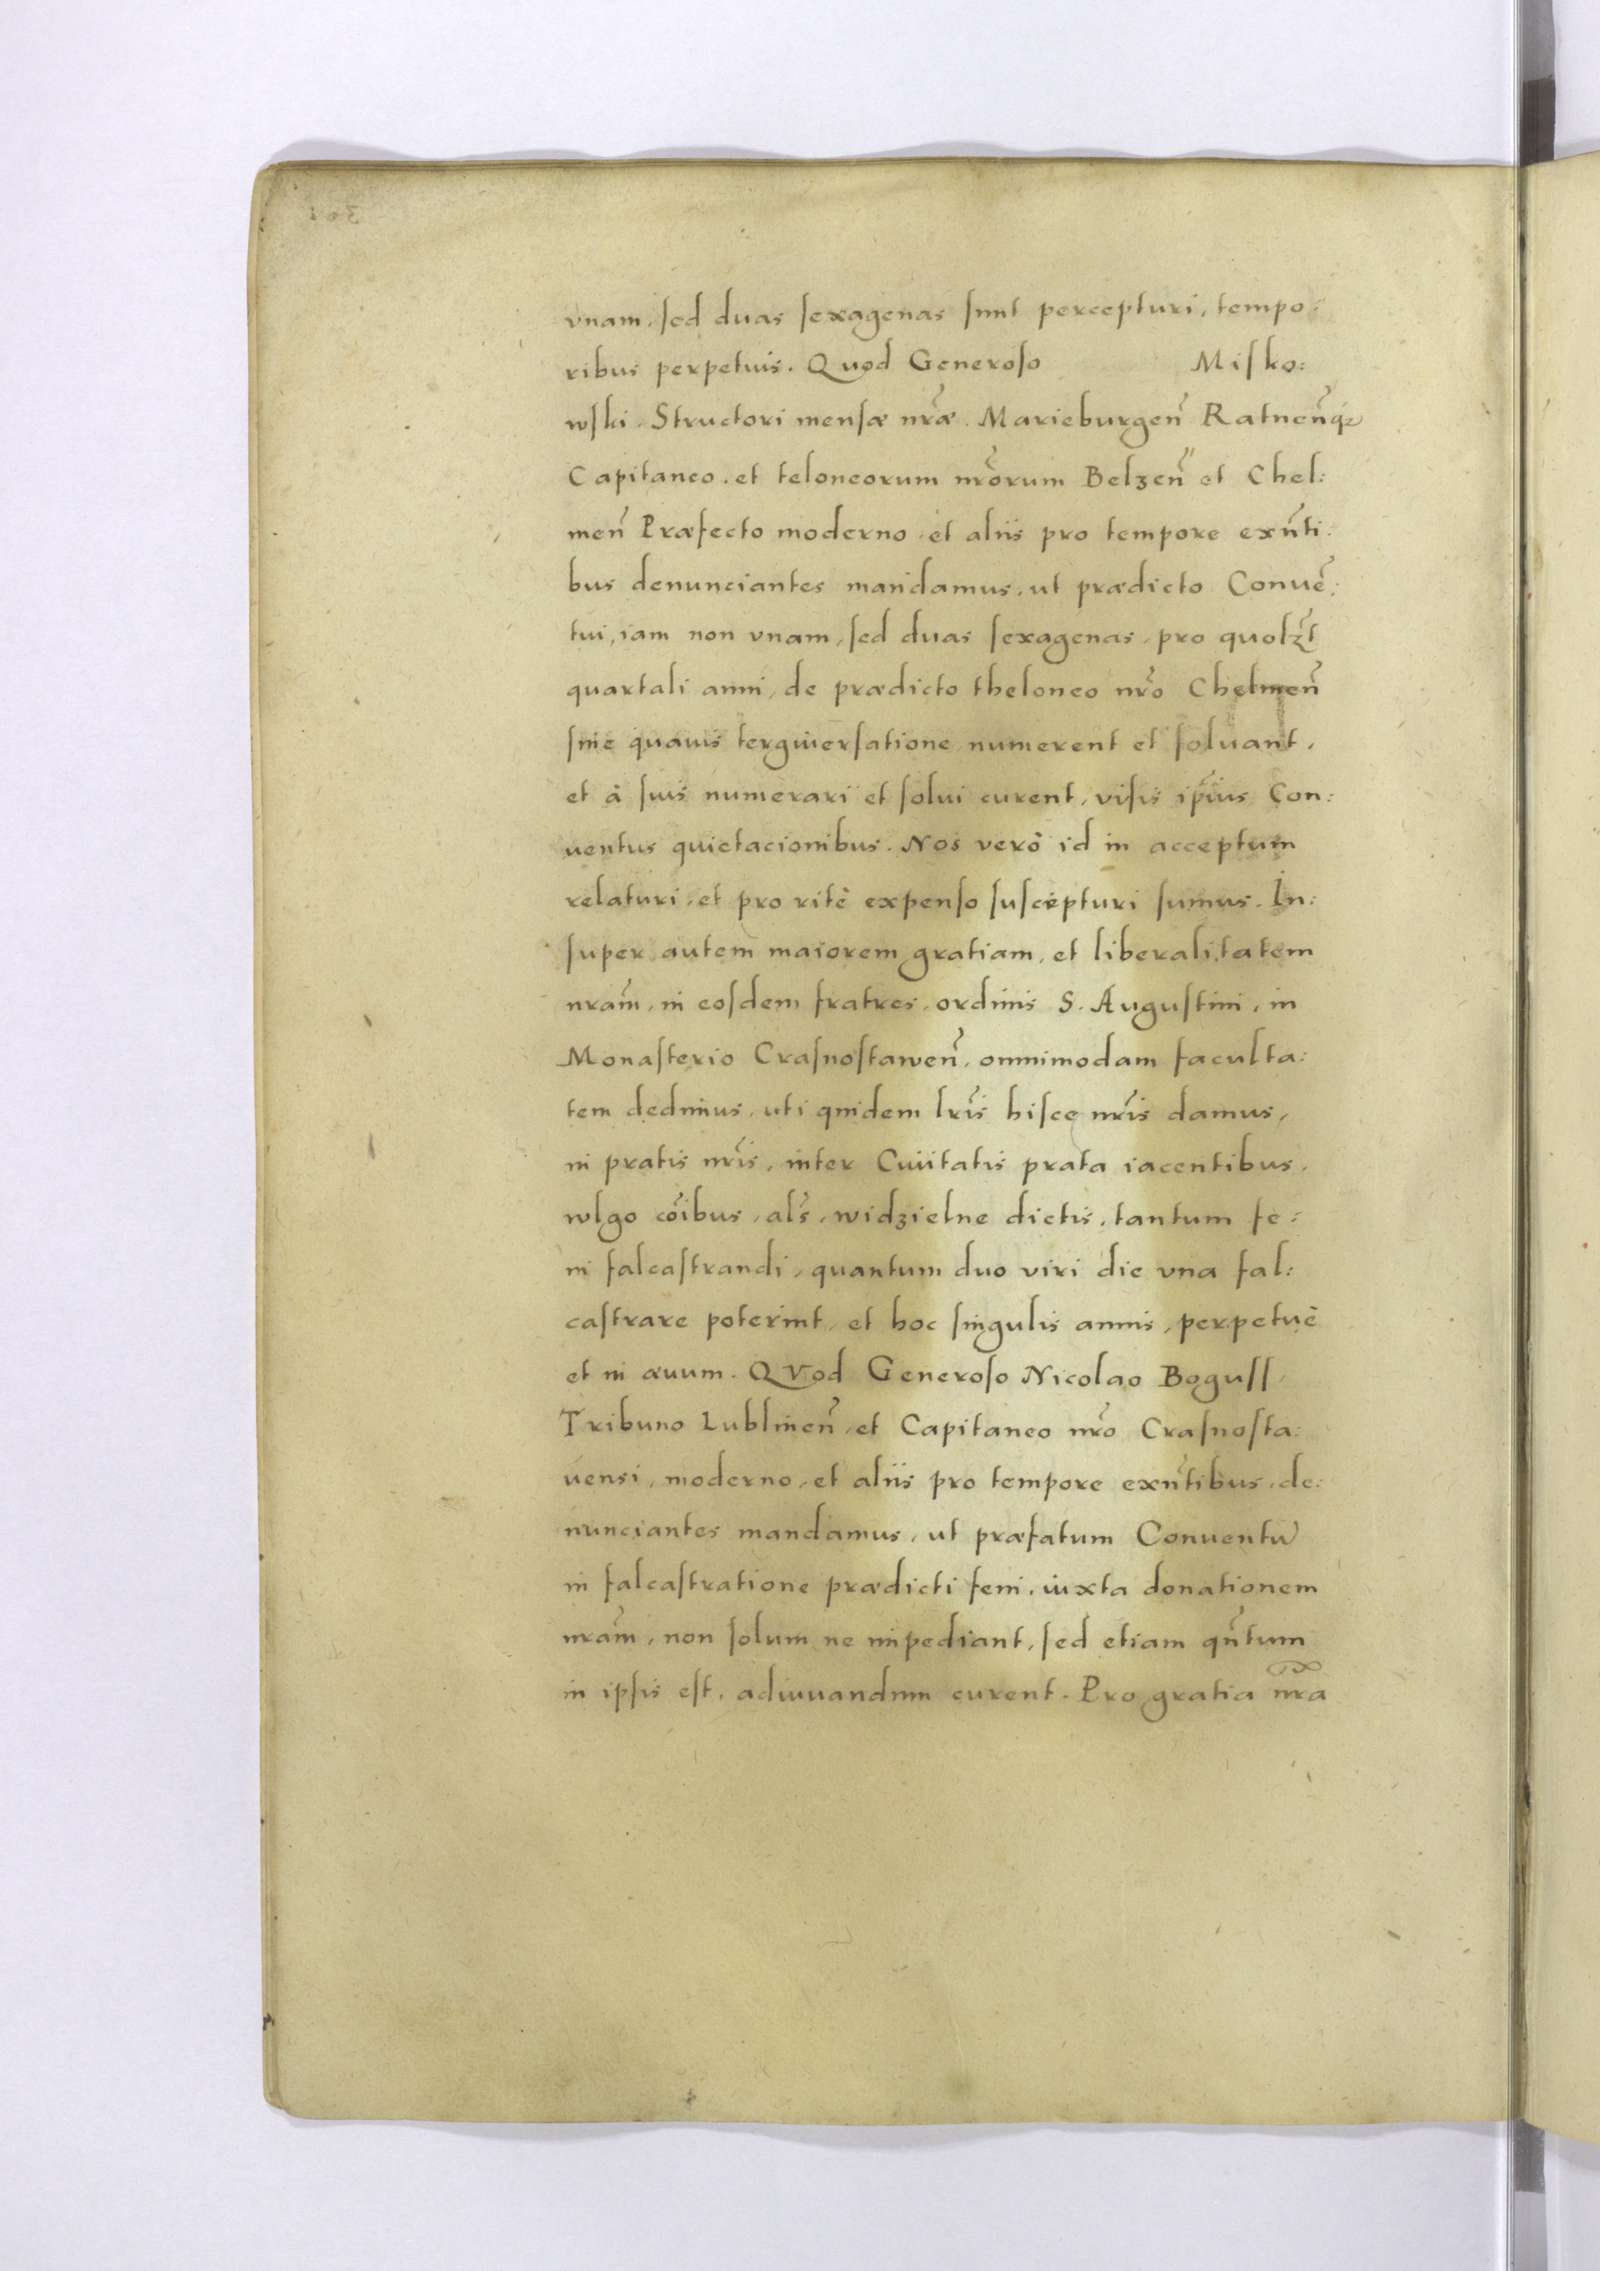 vnam, sed duas sexagenas sunt percepturi, tempo:
ribus perpetuis. Quod Generoso Misko:
wski. Structori mensæ nr̃æ. Marieburgeñ Ratneñq3
Capitaneo. et teloneorum nr̃orum Belzeñ et Chel:
meñ Præfecto moderno et aliis pro tempore exñti:
bus denunciantes mandamus, ut prædicto Conuẽ:
tui, iam non vnam, sed duas sexagenas, pro quolz̃t
quartali anni, de prædicto theloneo nr̃o Chelmeñ
sine quauis tergiuersatione numerent et soluant,
et à suis numerari et solui curent, visis ip̃ius Con:
uentus quietacionibus. Nos verò id in acceptum
relaturi, et pro ritè expenso suscepturi sumus. In:
super autem maiorem gratiam, et liberalitatem
nram̃, in eosdem fratres, ordinis S. Augustini, in
Monasterio Crasnostaweñ, omnimodam faculta:
tem dedimus, uti quidem lr̃is hisce nr̃is damus,
in pratis nr̃is, inter Ciuitatis prata iacentibus,
wlgo cõibus, als̃, widzielne dictis, tantum fe:
ni falcastrandi, quantum duo viri die vna fal:
castrare poterint, et hoc singulis annis, perpetuè
et in æuum. QVod Generoso Nicolao Boguss,
Tribuno Lublineñ, et Capitaneo nr̃o Crasnosta:
uensi, moderno, et aliis pro tempore exñtibus, de:
nunciantes mandamus, ut præfatum Conuentũ
in falcastratione prædicti feni, iuxta donationem
nram̃, non solum ne impediant, sed etiam qñtum
in ipsis est, adiuuandum curent. Pro gratia nr̃a